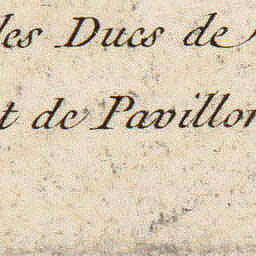 les Ducs de
t de Pavillon